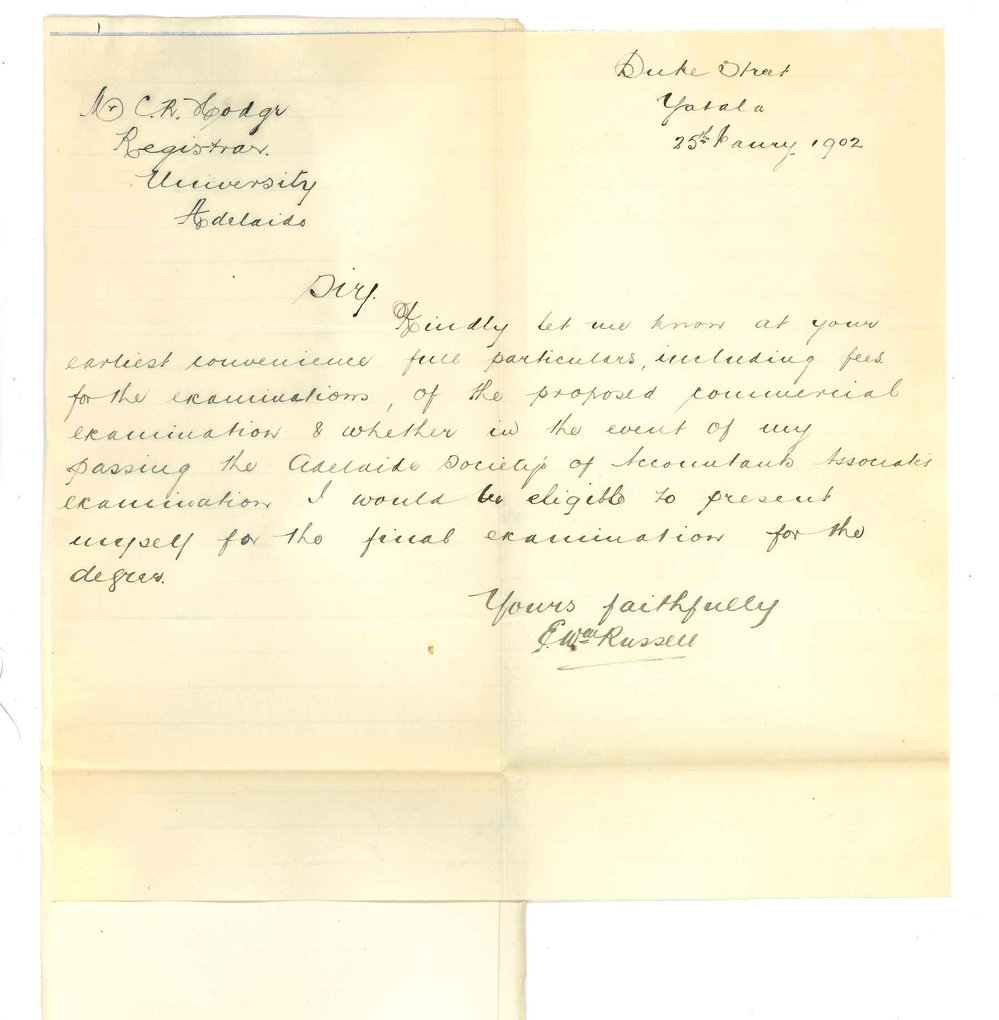 Duke Street
Yatala
25th Janry. 1902
Mr C. R. Hodge
Registrar.
University
Adelaide
Sir,
Kindly let me know at your
earliest convenience full particulars, including fees
for the examinations, of the proposed commercial
examination & whether in the event of my
passing the Adelaide Society's of Accountants Associates
examination I would be eligible to present
myself for the final examination for the
degree.
Yours faithfully
E. Wm Russell